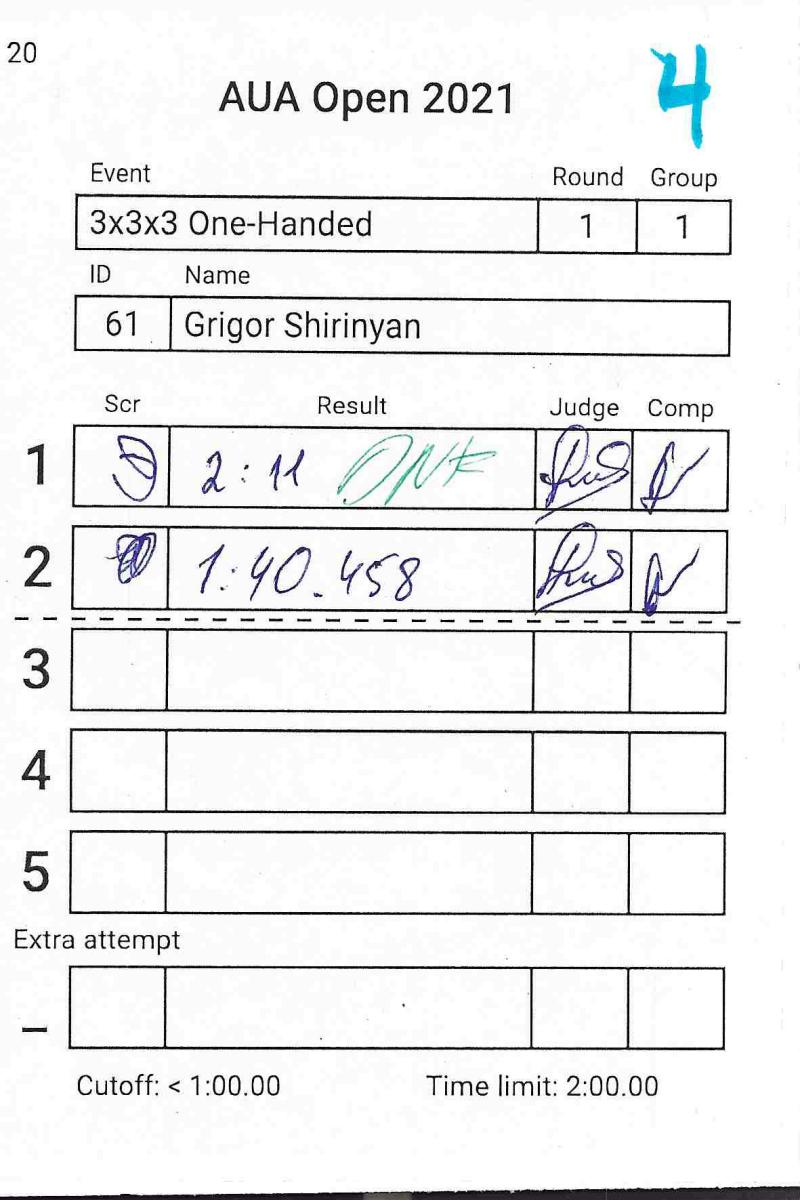 20
4
AUA Open 2021
Event Round Group
3x3x3 One-Handed 1 1
ID Name
61 Grigor Shirinyan
Scr Result Judge Comp
1 2:11 DNF
2 1:40.458
3
4
5
Extra attempt
_
Cutoff: < 1:00.00 Time limit: 2:00.00